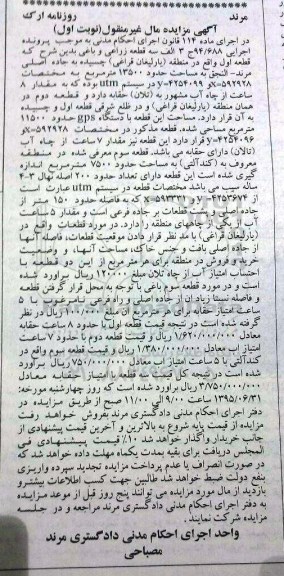 مرند روزنامه ارک
آگهی مزایده مال غیرمنقول(نوبت اول)
در اجرای ماده ۱۱۴ قانون اجرای احکام مدنی به موجب پرونده
اجرایی ۹۴/۶۸۸ج ۳ الف سه قطعه زراعی و باغی بدین شرح که
قطعه اول واقع در منطقه (یارلیغان فراغی) چسبیده به جاده اصلی
مرند- النجق به مساحت حدود ۱۳۵۰۰ مترمربع به مختصات
x=۵۹۲۹۲۸ و y=۴۲۵۴۰۹۹ در سیستم utm بوده که به مقدار ۸
ساعت از چاه آب مشهور به (تلان) حقابه دارد و قطعه دوم در
همان منطقه (یارلیغان فراغی) و در ضلع شرقی قطعه اول و چسبیده
به آن قرار دارد. مساحت این قطعه با دستگاه gps حدود ۱۱۵۰۰
مترمربع مساحی شده. قطعه مذکور در مختصات x=۵۹۲۹۲۸
y=۴۲۵۴۰۹۶ قرار دارد این قطعه نیز مقدار ۷ ساعت از چاه آب
(تالان) دارای حقابه می باشد. قطعه سوم معرفی شده در منطقه
معروف به (کندآلتی) به مساحت حدود ۷۵۰۰ مترمربع اندازه
گیری شده است این قطعه دارای تعداد حدود ۲۰۰ اصله نهال ۳-۴
ساله سیب می باشد مختصات قطعه در سیستم utm عبارت است
از y=۴۲۵۳۶۷۴ که به فاصله حدود ۱۵۰ متر از
جاده اصلی و چسبیده بر جاده فرعی است و مقدار ۵ ساعت
آب از یکی از چاههای منطقه را دارد. در مورد قطعات واقع در
(یارلیغان فراغی) با مد نظر قرار دادن موقعیت قطعات، فاصله آنها
از جاده اصلی بافت و جنس خاک مساحت آنها و وضعیت
خرید و فروش در منطقه برای هر متر مربع از این دو قطعه با
احتساب امتیاز آب از چاه تلان مبلغ ۱۲۰۰۰۰ ریال برآورد شده
است و در مورد قطعه سوم باغی با توجه به محل قرار گرفتن قطعه
و فاصله نسبتا زیاد آن از جاده اصلی و راه فرعی نامرغوب با ۵
ساعت امتیاز حقابه برای هر مترمربع آن مبلغ ۱۰۰/۰۰۰ ریال در نظر
گرفته شده است در نتیجه قیمت قطعه اول با حدود ۸ ساعت حقابه
معادل ۱/۶۲۰/۰۰۰/۰۰۰ ریال و قیمت قطعه دوم با حدود ۷ ساعت
امتیاز اب معادل ۱/۳۸۰/۰۰۰/۰۰۰ ریال و قیمت قطعه سوم واقع در
کندآلتی با ۵ ساعت امتیاز آب معادل ۷۵۰/۰۰۰/۰۰۰ ریال برآورد
شده است در نتیجه کل قیمت سه قطعه با امتیاز حقابه معادل
۳/۷۵۰/۰۰۰/۰۰۰ ریال برآورد شده است که روز چهارشنبه مورخه:
۱۳۹۵/۰۶/۳۱ ساعت ۹/۰۰ الی ۱۱/۰۰ صبح از طریق مزایده در
دفتر اجرای احکام مدنی دادگستری مرند بفروش خواهد رفت
مزایده از قیمت پایه شروع به بالاترین و آخرین قیمت پیشنهادی از
جانب خریدار واگذار خواهد شد ۱۰٪ قیمت پیشنهادی فی
المجلس دریافت برای بقیه بمدت یکماه مهلت داده خواهد شد که
در صورت انصراف یا عدم پرداخت مزایده تجدید سپرده واریزی
بنفع دولت ضبط خواهد شد طالبین جهت کسب اطلاعات بیشتر و
بازدید از مال مورد مزایده می توانند پنج روز قبل از موعد مزایده
به دفتر اجرای احکام مدنی دادگستری مرند مراجعه و در جلسه
مزایده شرکت نمایند.
واحد اجرای احکام مدنی دادگستری مرند
مصباحی